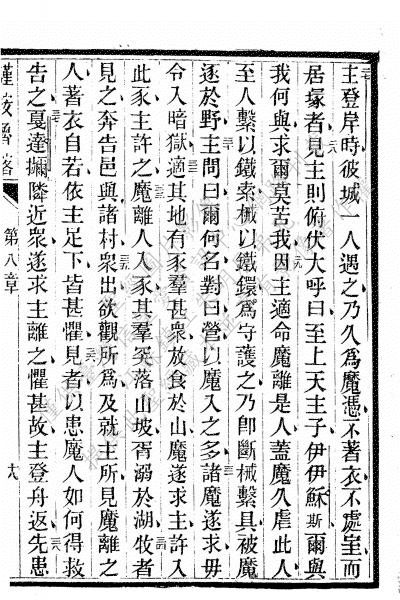 主登岸時彼城一人遇之乃久爲魔憑不著衣不處室而
居塚者見主則俯伏大呼曰至上天主子伊伊穌斯爾與
我何與求爾莫苦我因主適命魔離是人蓋魔久虐此人
至人繫以鐵索械以鐵鐶爲守護之乃卽斷械繫具被魔
逐於野主問曰爾何名對曰營以魔入之多諸魔遂求毋
令入暗獄適其地有豕羣甚衆放食於山魔遂求主許入
此豕主許之魔離人入豕其羣突落山坡胥溺於湖牧者
見之奔告邑與諸村衆出欲觀所爲及就主所見魔離之
人著衣自若依主足下皆甚懼見者以患魔人如何得救
告之戛達㩜隣近衆遂求主離之懼甚故主登舟返先患
第八章